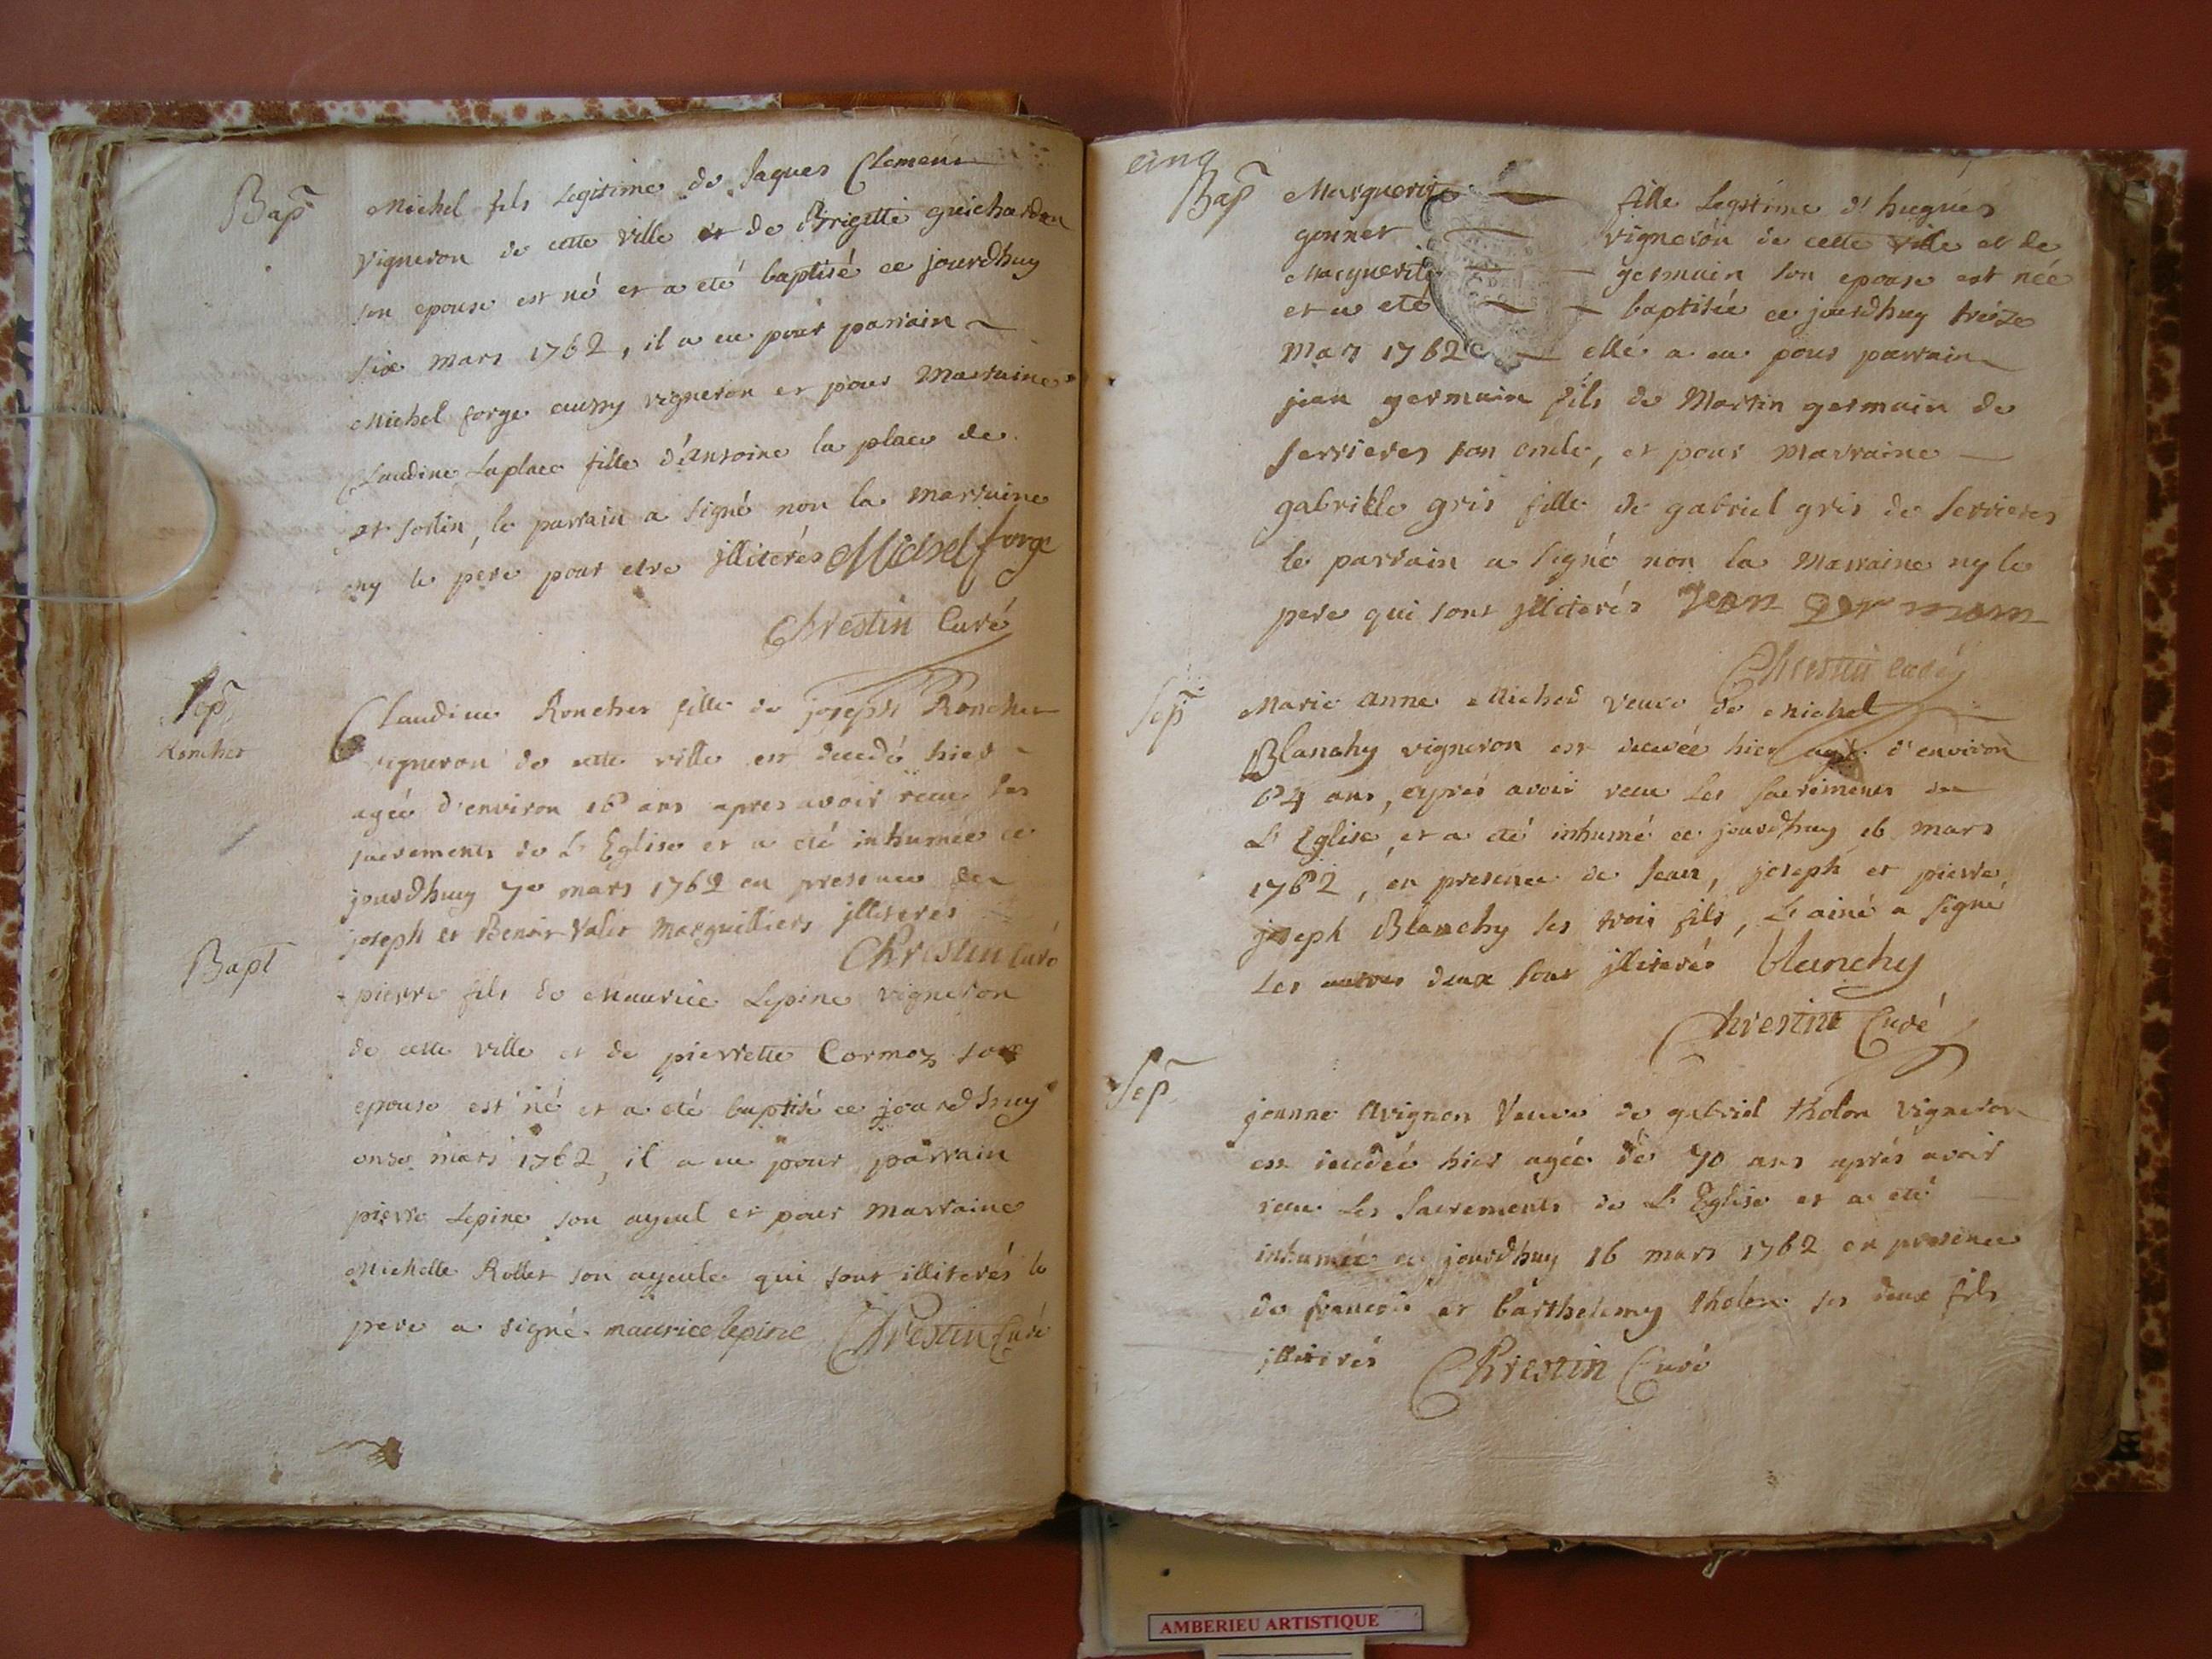 Bap~ Michel fils legitime de Jaques Clement
vigneron de cette ville et de Brigitte guichardon
son epouse est né et a eté baptisé ce jourdhuy
six mars 1762, il a eu pour parrain
Michel forge aussy vigneron et pour Marraine
Claudine Laplace fille d'Antoine la place de
st sorlin, le parrain a signé non la marraine
ny le pere pour etre jlliterés Michel forge
Chrestin Curé
Sep~
Roncher
Claudine Roncher fille de joseph Roncher
vigneron de cette ville est decedé hier
agée d'environ 16 ans apres avoir recu les
sacrements de L'Eglise et a eté inhumée ce
jourdhuy 7e mars 1762 en presence de
joseph et Benoit Valier Marguilliers jlliterés
Chrestin Curé
Bapt
pierre fils de Maurice Lepine vigneron
de cette ville et de pierrette Cormoz son
epouse est né et a eté baptisé ce jourdhuy
onze mars 1762, il a eu pour parrain
pierre Lepine son ayeul et pour Marraine
Michelle Rollet son ayeule qui sont illiterés le
pere a signé maurice lepine Chrestin Curé
cinq
Bap~ Marguerite fille Legitime d'hugues
gonnet vigneron de cette ville et de
Marguerite germain son epouse est née
et a eté baptisée ce jourdhuy treize
Mars 1762 elle a eu pour parrain
jean germain fils de Martin germain de
serrieres son oncle, et pour Marraine
gabrielle gris fille de gabriel gris de serrieres
le parrain a signé non la Marraine ny le
pere qui sont jlliterés Jean Germain
Chrestin curé
Sep~ Marie Anne Michod veuve de Michel
Blanchy vigneron est decedée hier agée d'environ
64 ans, aprés avoir recu Les sacrements de
L'Eglise, et a eté inhumé ce jourdhuy 16 mars
1762, en presence de Jean, joseph et pierre
joseph Blanchy ses trois fils, L'ainé a signé
Les autres deux sont jlliterés blanchy
Chrestin Curé
Sep~
jeanne Avignon Veuve de gabriel tholon vigneron
est decedée hier agée de 70 ans aprés avoir
recu Les Sacrements de L'Eglise et a eté
inhumée ce jourdhuy 16 mars 1762 en presence
de francois et barthelemy tholon ses deux fils
jlliterés Chrestin Curé
AMBERIEU ARTISTIQUE